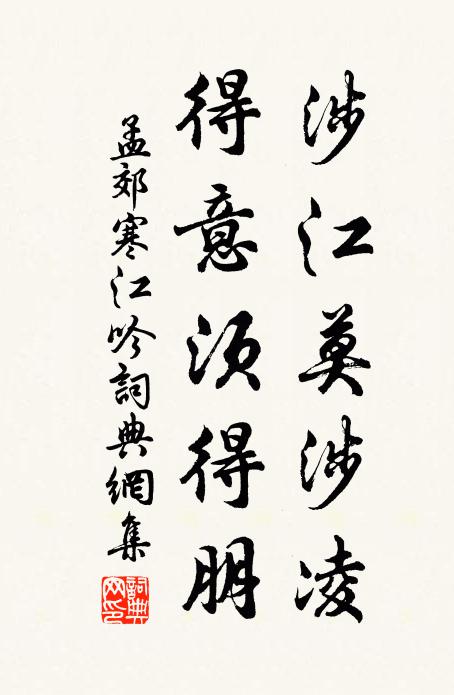 涉江莫涉凌
得意須得朋
孟郊寒江吟詞典網集
詞典網印